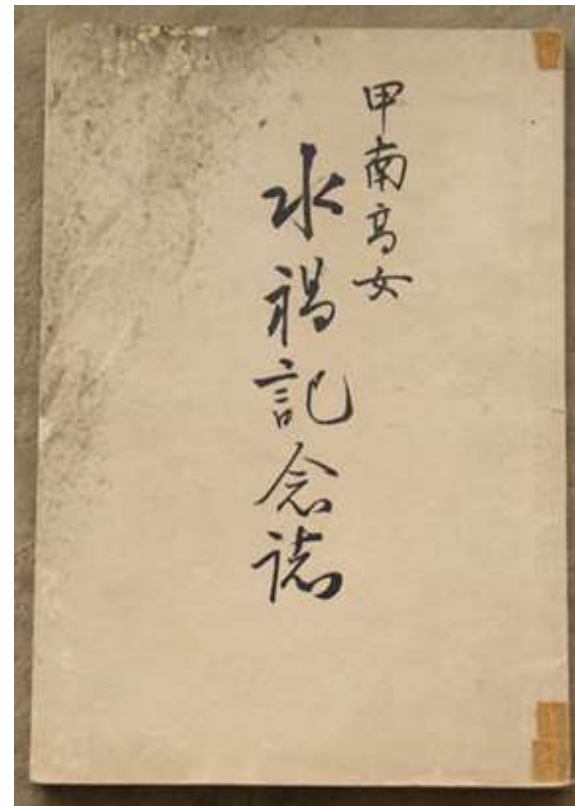 甲南高女
水禍記念誌